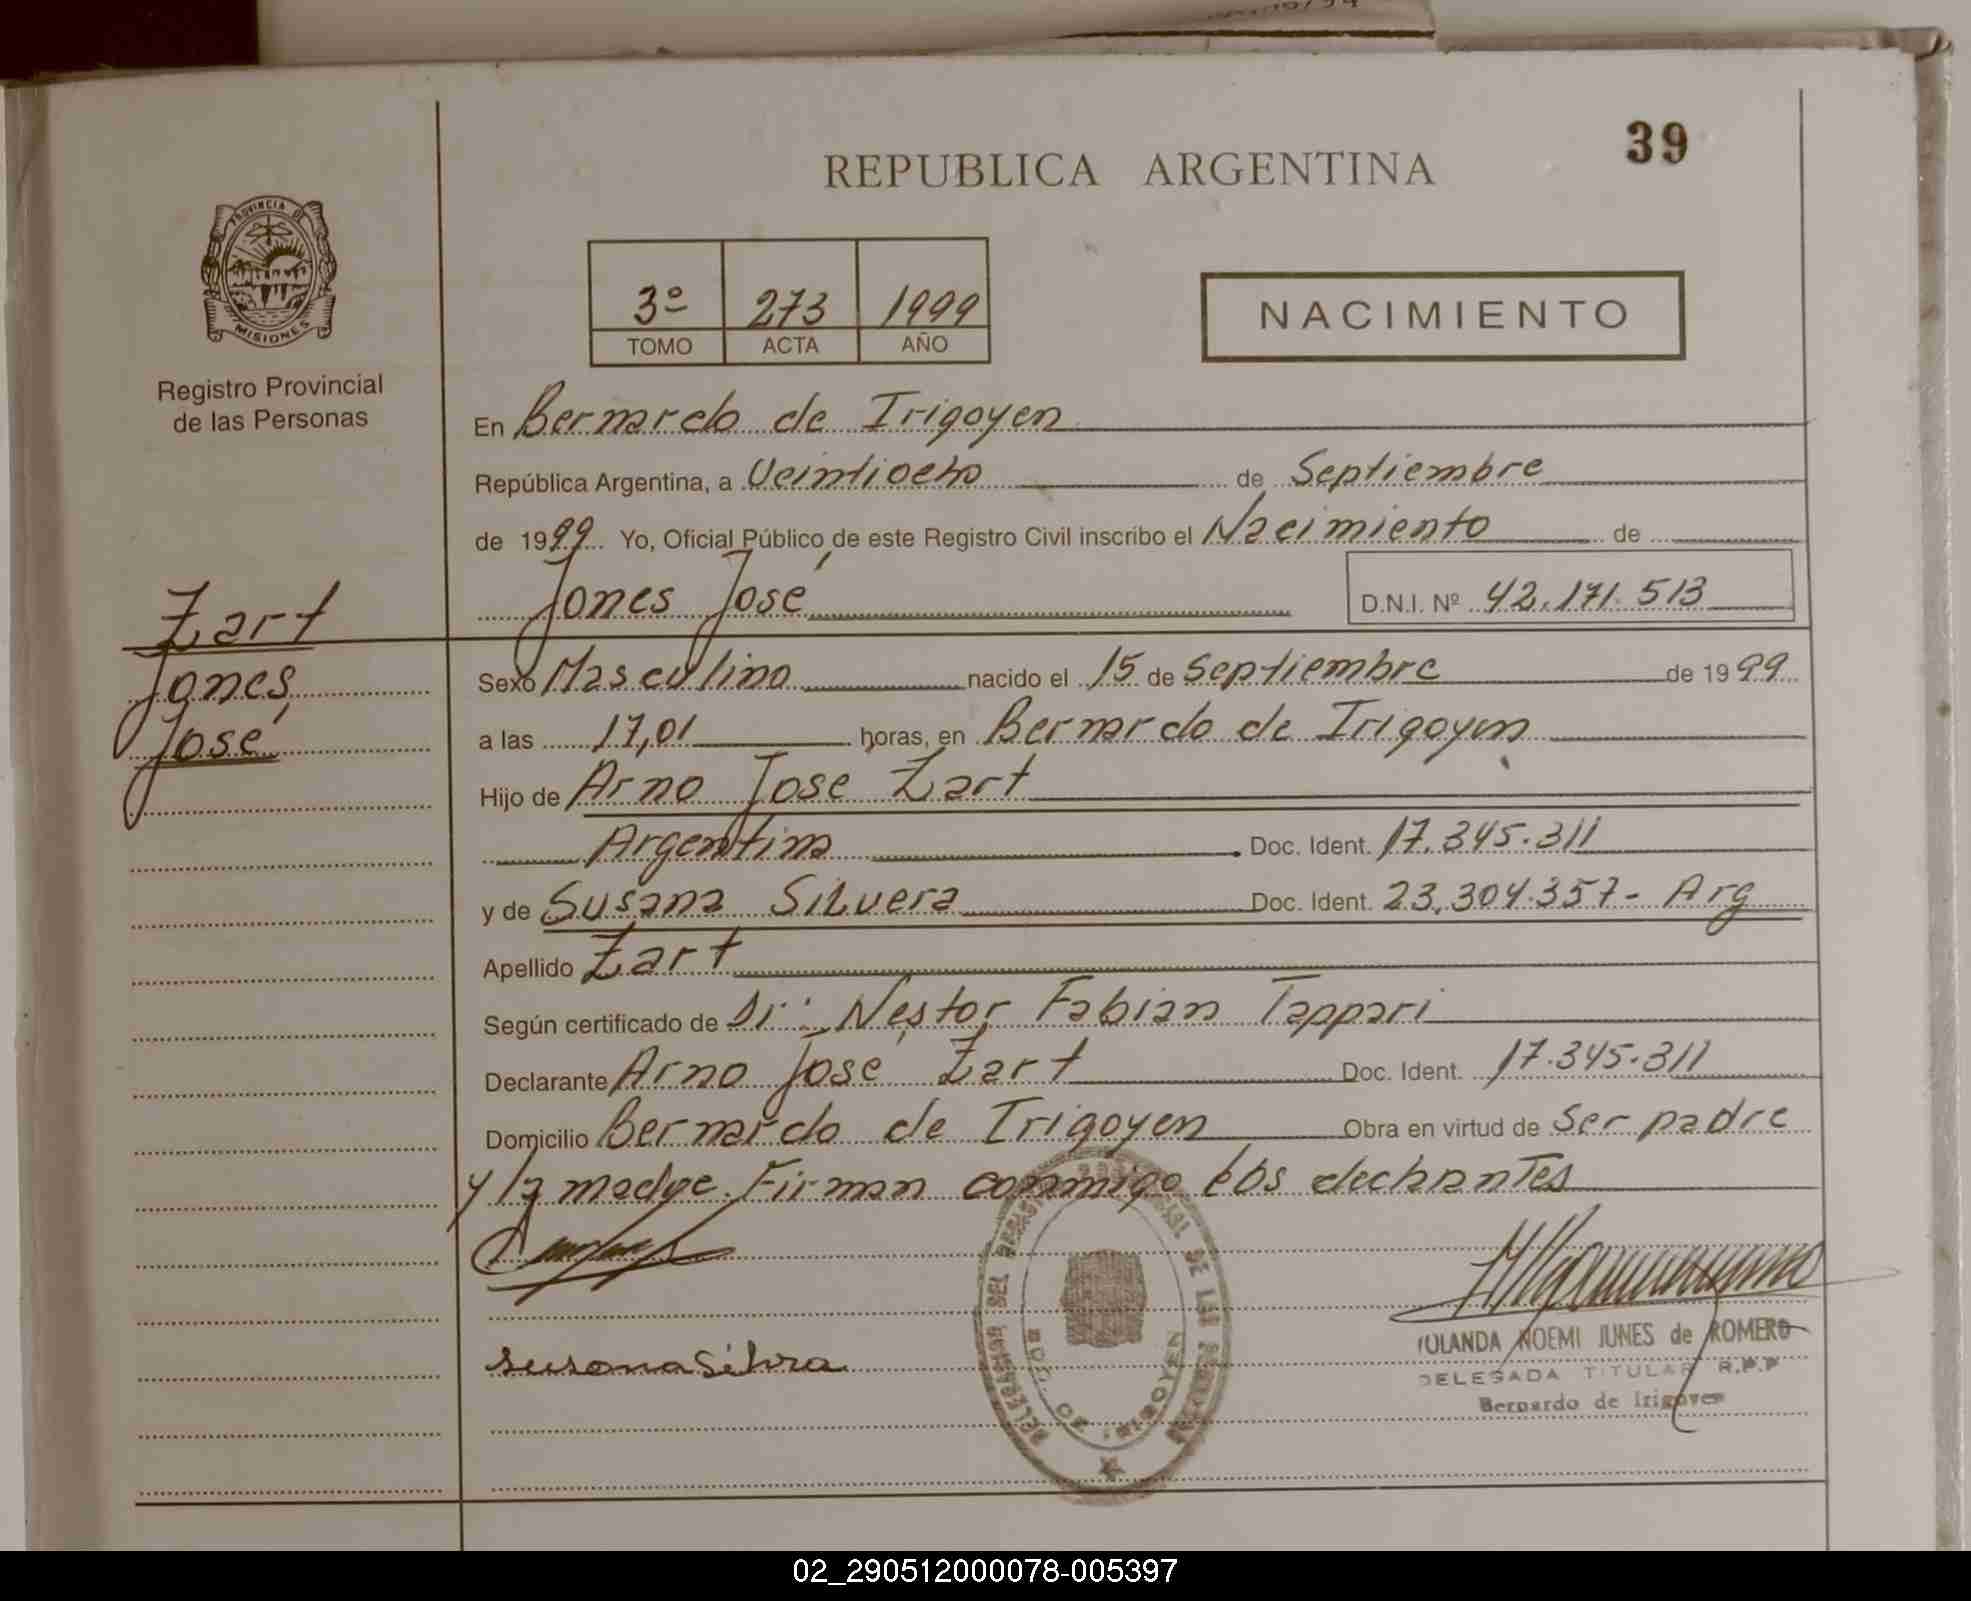 39
REPUBLICA ARGENTINA
PROVINCIA DE
MISIONES
Registro Provincial
de las Personas
3º 273 1999
TOMO ACTA AÑO
NACIMIENTO
En Bernardo de Irigoyen
República Argentina, a Veintiocho de Septiembre
de 1999 Yo, Oficial Público de este Registro Civil inscribo el Nacimiento de
Jones José D.N.I. Nº 42.171.513
Zart
Jones,
José
Sexo Masculino nacido el 15 de Septiembre de 1999
a las 17,01 horas, en Bernardo de Irigoyen
Hijo de Arno José Zart
Argentina Doc. Ident. 17.345.311
y de Susana Silvera Doc. Ident. 23.304.357- Arg
Apellido Zart
Según certificado de Dr: Nestor Fabian Tappari
Declarante Arno José Zart Doc. Ident. 17.345.311
Domicilio Bernardo de Irigoyen Obra en virtud de Ser padre
y la madre. Firman conmigo los declarantes
Susana Silvra
YOLANDA NOEMI JUNES de ROMERO
DELEGADA TITULAR R.P.P
Bernardo de Irigoyen
BDO. DE IRIGOYEN
02_290512000078-005397